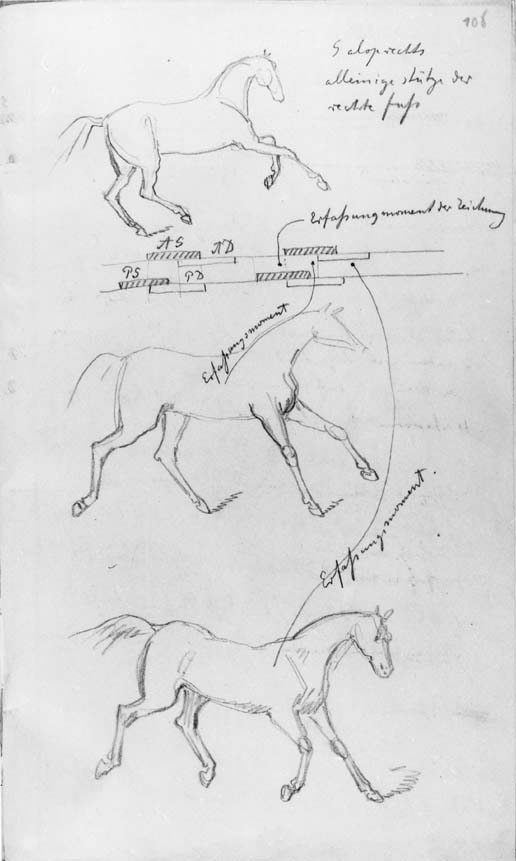 106
Galoprechts
alleinige stütze der
rechte fuss
Erfassungmoment der Zeichnung
AS AD
PS PD
Erfassungsmoment
Erfassungsmoment.